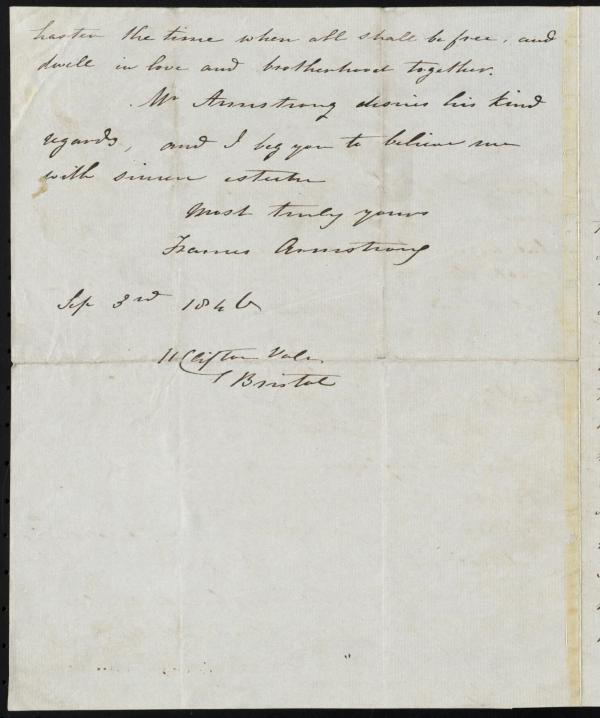 hasten the time when all shall be free, and
dwell in love and brotherhood together.
Mr Armstrong desires his kind
regards, and I beg you to believe me
with sincere esteem
Most truly yours
Frances Armstrong
Sep 3rd 1846
11 Clifton Vale
Bristol